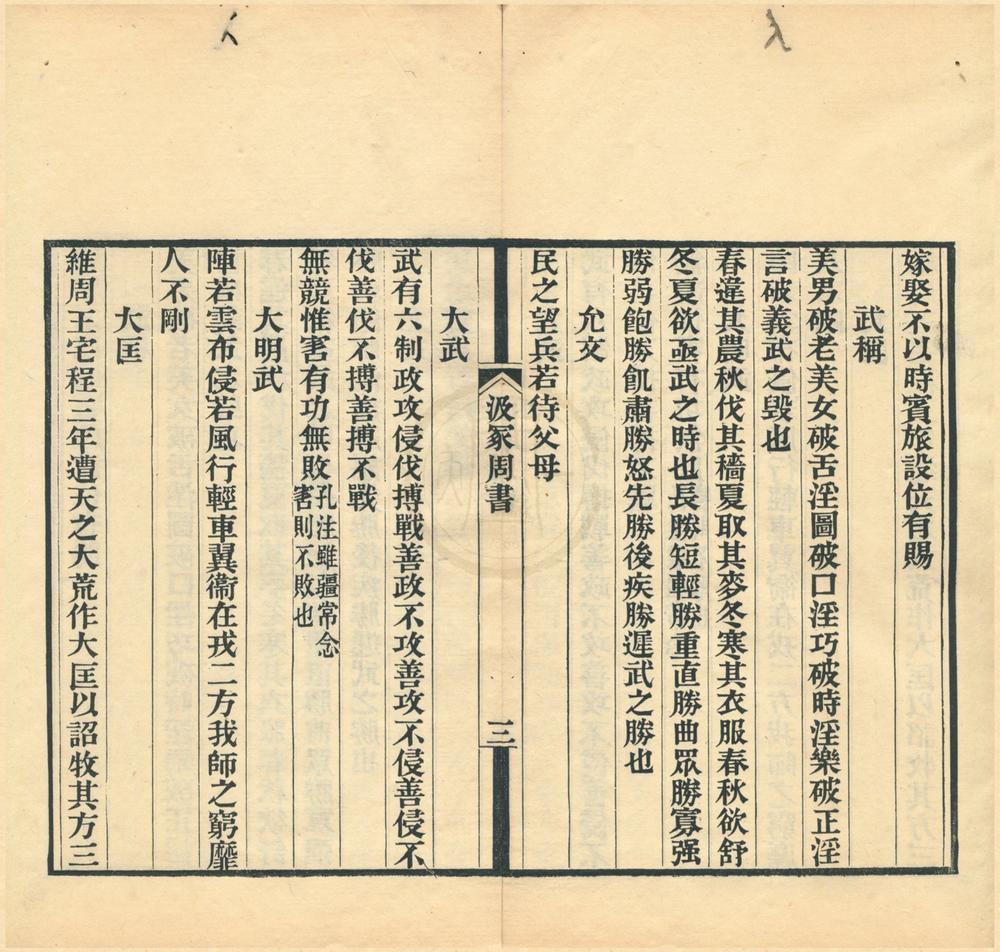 嫁娶不以時賓旅設位有賜
武稱
美男破老美女破舌淫圖破口淫巧破時淫樂破正淫
言破義武之毀也
春違其農秋伐其穡夏取其麥冬寒其衣服春秋欲舒
冬夏欲亟武之時也長勝短輕勝重直勝曲眾勝寡强
勝弱飽勝飢肅勝怒先勝後疾勝遲武之勝也
允文
民之望兵若待父母
汲冢周書
三
大武
武有六制政攻侵伐搏戰善政不攻善攻不侵善侵不
伐善伐不搏善搏不戰
無競惟害有功無敗孔注雖疆常念
害則不敗也
大明武
陣若雲布侵若風行輕車翼衞在戎二方我師之窮靡
人不剛
大匡
維周王宅程三年遭天之大荒作大匡以詔牧其方三